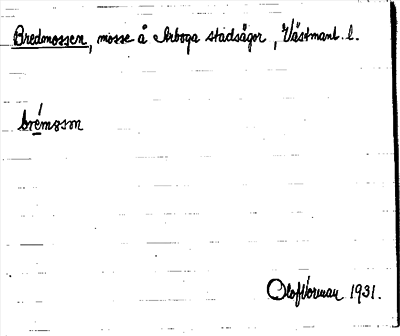 Bredmossen, mosse å Arboga stadsägor, Västmanl. l.
brémosən
Olof Norman 1931.